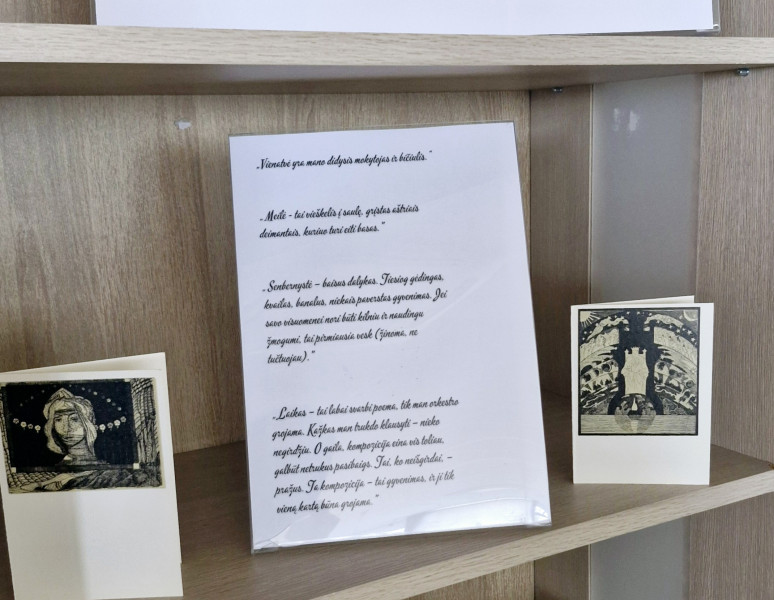 „Vienatvė yra mano didysis mokytojas ir bičiulis.“
„Meilė - tai vieškelis į saulę, grįstas aštriais
deimantais, kuriuo turi eiti basas.“
„Senbernystė – baisus dalykas. Tiesiog gėdingas,
kvailas, banalus, niekais paverstas gyvenimas. Jei
savo visuomenei nori būti kilniu ir naudingu
žmogumi, tai pirmiausia vesk (žinoma, ne
tučtuojau).“
„Laikas – tai labai svarbi poema, tik man orkestro
grojama. Kažkas man trukdo klausyti – nieko
negirdžiu. O gaila, kompozicija eina vis toliau,
galbūt netrukus pasibaigs. Tai, ko neišgirdai, –
pražus. Ta kompozicija – tai gyvenimas, ir ji tik
vieną kartą būna grojama.“